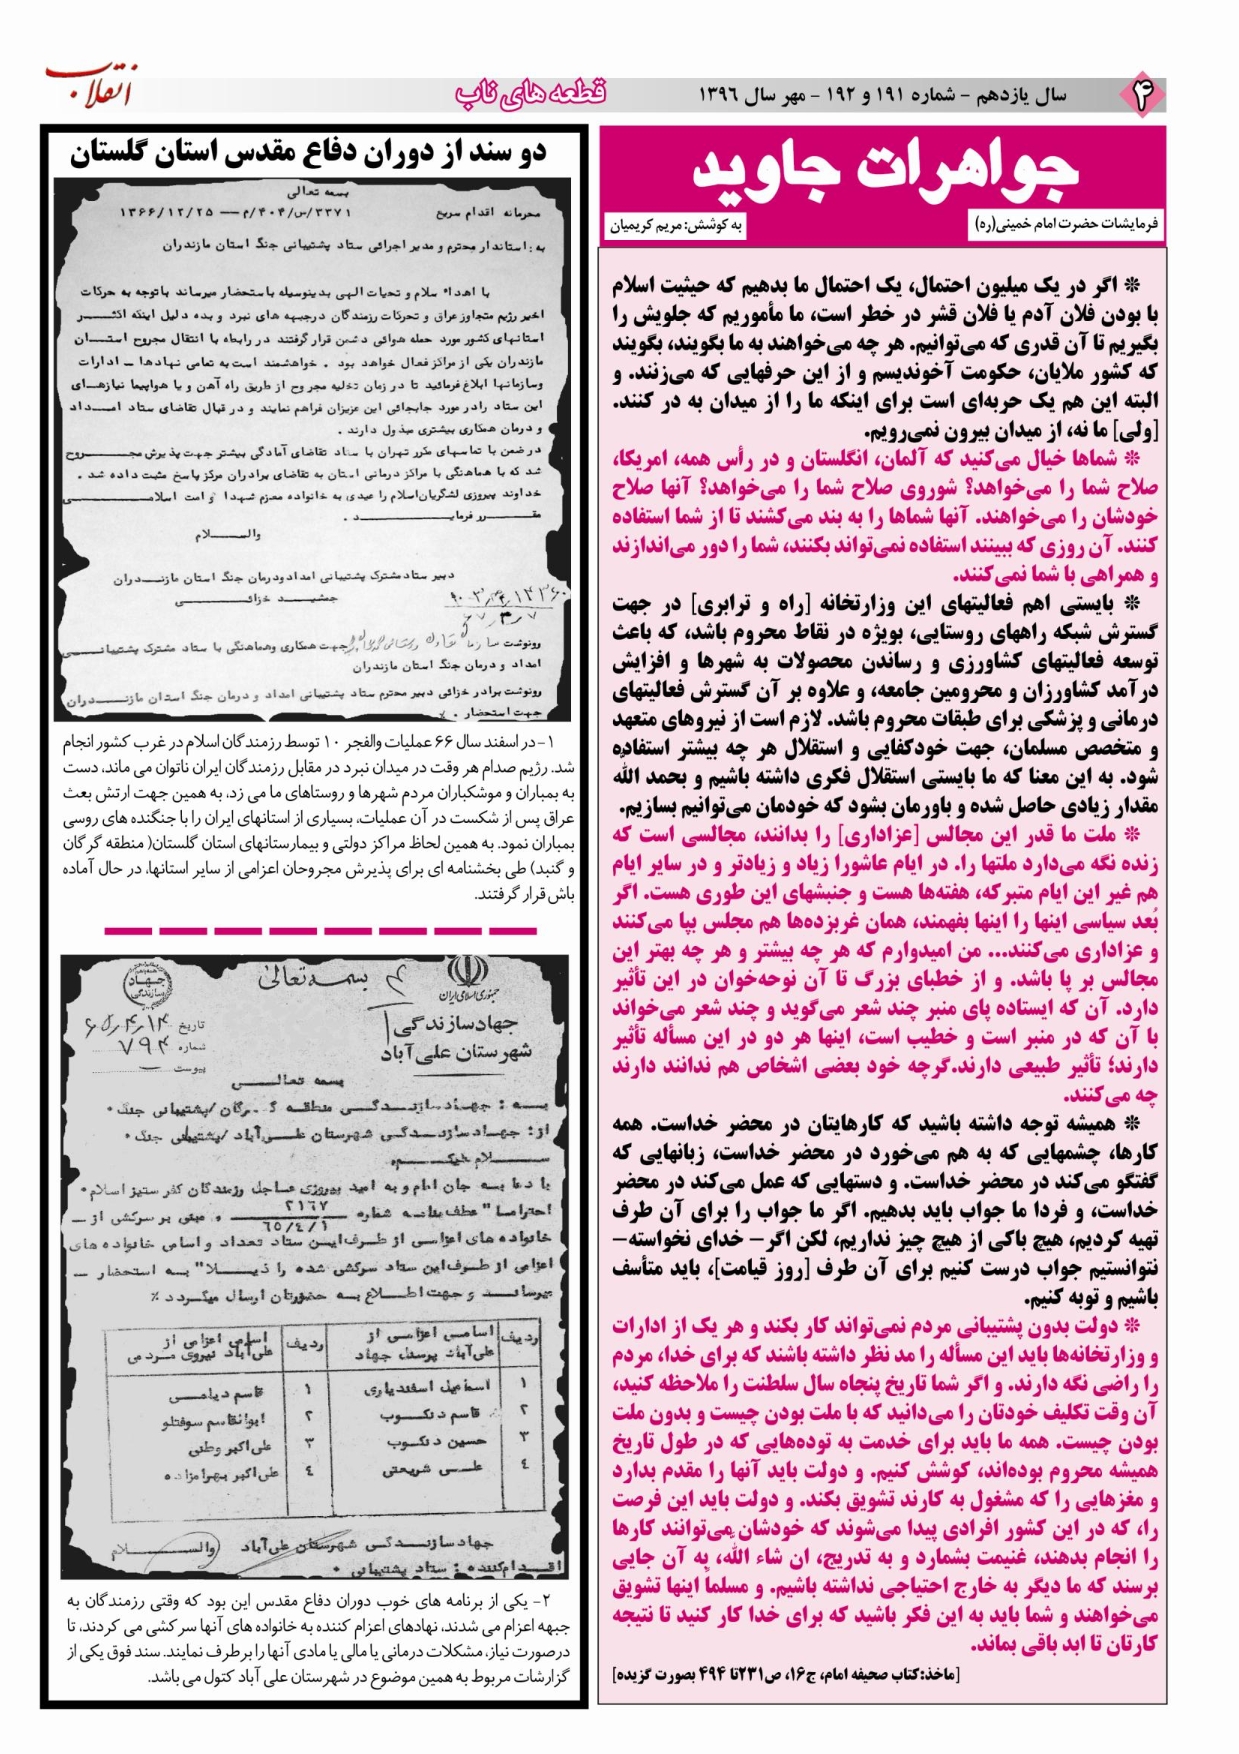 ۴
سال یازدهم - شماره ۱۹۱ و ۱۹۲ - مهر سال ۱۳۹۶
قطعه های ناب
انقلاب
جواهرات جاوید
فرمایشات حضرت امام خمینی(ره)
به کوشش: مریم کریمیان
❋ اگر در یک میلیون احتمال، یک احتمال ما بدهیم که حیثیت اسلام
با بودن فلان آدم یا فلان قشر در خطر است، ما مأموریم که جلویش را
بگیریم تا آن قدری که می‌توانیم. هر چه می‌خواهند به ما بگویند، بگویند
که کشور ملایان، حکومت آخوندیسم و از این حرفهایی که می‌زنند. و
البته این هم یک حربه‌ای است برای اینکه ما را از میدان به در کنند.
[ولی] ما نه، از میدان بیرون نمی‌رویم.
❋ شماها خیال می‌کنید که آلمان، انگلستان و در رأس همه، امریکا،
صلاح شما را می‌خواهد؟ شوروی صلاح شما را می‌خواهد؟ آنها صلاح
خودشان را می‌خواهند. آنها شماها را به بند می‌کشند تا از شما استفاده
کنند. آن روزی که ببینند استفاده نمی‌تواند بکنند، شما را دور می‌اندازند
و همراهی با شما نمی‌کنند.
❋ بایستی اهم فعالیتهای این وزارتخانه [راه و ترابری] در جهت
گسترش شبکه راههای روستایی، بویژه در نقاط محروم باشد، که باعث
توسعه فعالیتهای کشاورزی و رساندن محصولات به شهرها و افزایش
درآمد کشاورزان و محرومین جامعه، و علاوه بر آن گسترش فعالیتهای
درمانی و پزشکی برای طبقات محروم باشد. لازم است از نیروهای متعهد
و متخصص مسلمان، جهت خودکفایی و استقلال هر چه بیشتر استفاده
شود. به این معنا که ما بایستی استقلال فکری داشته باشیم و بحمد اللّه
مقدار زیادی حاصل شده و باورمان بشود که خودمان می‌توانیم بسازیم.
❋ ملت ما قدر این مجالس [عزاداری] را بدانند، مجالسی است که
زنده نگه می‌دارد ملتها را. در ایام عاشورا زیاد و زیادتر و در سایر ایام
هم غیر این ایام متبرکه، هفته‌ها هست و جنبشهای این طوری هست. اگر
بُعد سیاسی اینها را اینها بفهمند، همان غربزده‌ها هم مجلس بپا می‌کنند
و عزاداری می‌کنند... من امیدوارم که هر چه بیشتر و هر چه بهتر این
مجالس بر پا باشد. و از خطبای بزرگ تا آن نوحه‌خوان در این تأثیر
دارد. آن که ایستاده پای منبر چند شعر می‌گوید و چند شعر می‌خواند
با آن که در منبر است و خطیب است، اینها هر دو در این مسأله تأثیر
دارند؛ تأثیر طبیعی دارند.گرچه خود بعضی اشخاص هم ندانند دارند
چه می‌کنند.
❋ همیشه توجه داشته باشید که کارهایتان در محضر خداست. همه
کارها، چشمهایی که به هم می‌خورد در محضر خداست، زبانهایی که
گفتگو می‌کند در محضر خداست. و دستهایی که عمل می‌کند در محضر
خداست، و فردا ما جواب باید بدهیم. اگر ما جواب را برای آن طرف
تهیه کردیم، هیچ باکی از هیچ چیز نداریم، لکن اگر- خدای نخواسته-
نتوانستیم جواب درست کنیم برای آن طرف [روز قیامت]، باید متأسف
باشیم و توبه کنیم.
❋ دولت بدون پشتیبانی مردم نمی‌تواند کار بکند و هر یک از ادارات
و وزارتخانه‌ها باید این مسأله را مد نظر داشته باشند که برای خدا، مردم
را راضی نگه دارند. و اگر شما تاریخ پنجاه سال سلطنت را ملاحظه کنید،
آن وقت تکلیف خودتان را می‌دانید که با ملت بودن چیست و بدون ملت
بودن چیست. همه ما باید برای خدمت به توده‌هایی که در طول تاریخ
همیشه محروم بوده‌اند، کوشش کنیم. و دولت باید آنها را مقدم بدارد
و مغزهایی را که مشغول به کارند تشویق بکند. و دولت باید این فرصت
را، که در این کشور افرادی پیدا می‌شوند که خودشان می‌توانند کارها
را انجام بدهند، غنیمت بشمارد و به تدریج، ان شاء اللّه، به آن جایی
برسند که ما دیگر به خارج احتیاجی نداشته باشیم. و مسلماً اینها تشویق
می‌خواهند و شما باید به این فکر باشید که برای خدا کار کنید تا نتیجه
کارتان تا ابد باقی بماند.
[ماخذ:کتاب صحیفه امام، ج۱۶، ص۲۳۱تا ۴۹۴ بصورت گزیده]
دو سند از دوران دفاع مقدس استان گلستان
بسمه تعالی
محرمانه اقدام سریع ۳۳۷۱/س/۴۰۴/م — ۱۳۶۶/۱۲/۲۵
به: استاندار محترم و مدیر اجرائی ستاد پشتیبانی جنگ استان مازندران
با اهداء سلام و تحیات الهی بدینوسیله باستحضار میرساند باتوجه به حرکات
اخیر رژیم متجاوز عراق و تحرکات رزمندگان درجبهه های نبرد و بده دلیل اینکه اکثر
استانهای کشور مورد حمله هوائی دشمن قرار گرفتند در رابطه با انتقال مجروح استان
مازندران یکی از مراکز فعال خواهد بود . خواهشمند است به تمامی نهادها - ادارات
وسازمانها ابلاغ فرمائید تا در زمان تخلیه مجروح از طریق راه آهن و یا هواپیما نیازهای
این ستاد رادر مورد جابجائی این عزیزان فراهم نمایند و در قبال تقاضای ستاد امداد
و درمان همکاری بیشتری مبذول دارند .
درضمن با تماسهای مکرر تهران با ستاد تقاضای آمادگی بیشتر جهت پذیرش مجروح
شد که با هماهنگی با مراکز درمانی استان به تقاضای برادران مرکز پاسخ مثبت داده شد .
خداوند پیروزی لشگریان اسلام را عیدی به خانواده معزم شهدا و امت اسلامی
مقرر فرماید .
والسلام
دبیر ستاد مشترک پشتیبانی امداد ودرمان جنگ استان مازندران
جمشید خزائی
رونوشت جهت همکاری وهماهنگی با ستاد مشترک پشتیبانی
امداد و درمان جنگ استان مازندران
رونوشت برادر خزائی دبیر محترم ستاد پشتیبانی امداد و درمان جنگ استان مازندران
جهت استحضار .
۱-در اسفند سال ۶۶ عملیات والفجر ۱۰ توسط رزمندگان اسلام در غرب کشور انجام
شد. رژیم صدام هر وقت در میدان نبرد در مقابل رزمندگان ایران ناتوان می ماند، دست
به بمباران و موشکباران مردم شهرها و روستاهای ما می زد، به همین جهت ارتش بعث
عراق پس از شکست در آن عملیات، بسیاری از استانهای ایران را با جنگنده های روسی
بمباران نمود. به همین لحاظ مراکز دولتی و بیمارستانهای استان گلستان( منطقه گرگان
و گنبد) طی بخشنامه ای برای پذیرش مجروحان اعزامی از سایر استانها، در حال آماده
باش قرار گرفتند.
بسمه تعالی
جمهوری اسلامی ایران
جهاد سازندگی
شهرستان علی آباد
جهاد سازندگی
تاریخ
شماره ۷۹۴
پیوست
بسمه تعالی
به : جهاد سازندگی منطقه گرگان/پشتیبانی جنگ
از: جهاد سازندگی شهرستان علی آباد/پشتیبانی جنگ
سلام علیکم
با دعا به جان امام و به امید پیروزی عاجل رزمندگان کفر ستیز اسلام
احتراما" عطف بنامه شماره ۲۱۶۷ ۶۵/۴/۱ و مبنی بر سرکشی از
خانواده های اعزامی از طرف این ستاد تعداد و اسامی خانواده های
اعزامی از طرف این ستاد سرکشی شده را ذیلا" به استحضار
میرساند و جهت اطلاع به حضورتان ارسال میگردد ٪
ردیف اسامی اعزامی از علی آباد پرسنل جهاد ردیف اسامی اعزامی از علی آباد نیروی مردمی
۱ اسماعیل اسفندیاری ۱ قاسم دیلمی
۲ قاسم دنکوب ۲ ابوالقاسم سوفتلو
۳ حسین دنکوب ۳ علی اکبر وطنی
۴ علی شریعتی ۴ علی اکبر بهرامزاده
جهاد سازندگی شهرستان علی آباد والسلام
اقدام کننده : ستاد پشتیبانی
۲- یکی از برنامه های خوب دوران دفاع مقدس این بود که وقتی رزمندگان به
جبهه اعزام می شدند، نهادهای اعزام کننده به خانواده های آنها سرکشی می کردند، تا
درصورت نیاز، مشکلات درمانی یا مالی یا مادی آنها را برطرف نمایند. سند فوق یکی از
گزارشات مربوط به همین موضوع در شهرستان علی آباد کتول می باشد.